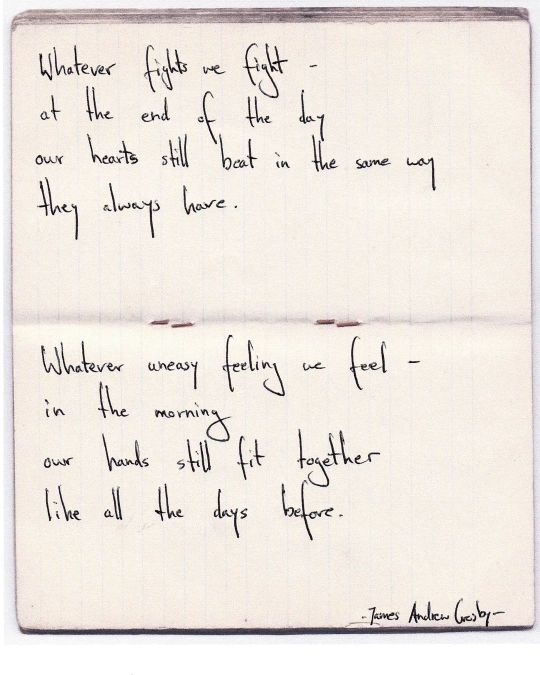 Whatever fights we fight -
at the end of the day
our hearts still beat in the same way
they always have.
Whatever uneasy feeling we feel -
in the morning
our hands still fit together
like all the days before.
-James Andrew Crosby-